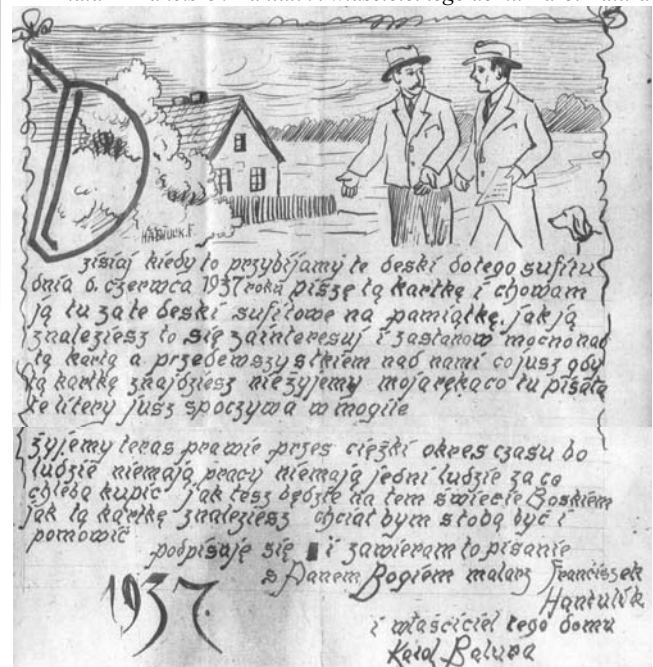 właściciel tego domu
Dzisiaj kiedy to przybijamy te deski dotego sufitu
dnia 6. czerwca 1937 roku piszę tą kartkę i chowam
ją tu zate deski sufitowe na pamiątkę. jak ją
znaleziesz to się zainteresuj i zastanow mocno nad
tą kartą a przedewszystkiem nad nami co jusz gdy
tą kartkę znajdziesz nieżyjemy mojaręka co tu pisała
te litery jusz spoczywa w mogile
żyjemy teras prawie przes ciężki okres czasu bo
ludzie niemają pracy niemają jedni ludzie za co
chleba kupić jak tesz będzie na tem świecie Boskiem
jak tą kartkę znaleziesz chciał bym stobą być i
pomowić
podpisuję się i zawieram to pisanie
s Panem Bogiem malarz Franciszek
Hantulik
1937.
i właściciel tego domu
Karol Bałupa